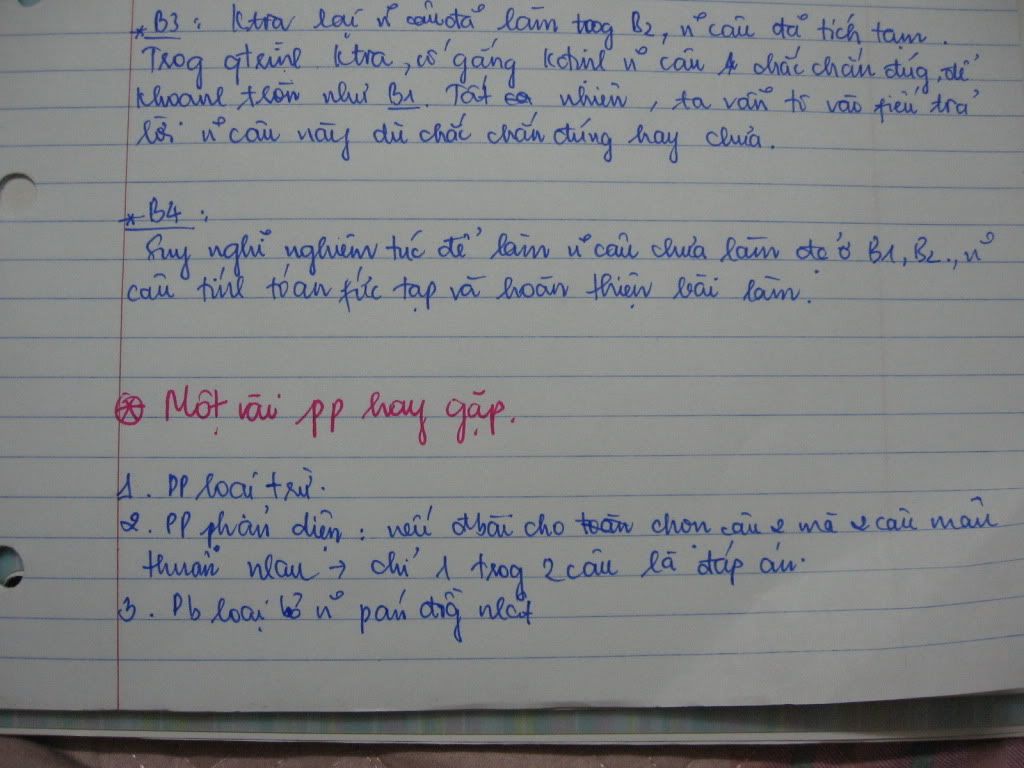 * B3 : Ktra lại n~ câu đã làm trog B2, n~ câu đã tích tạm.
Trog qtrình ktra, cố gắng kđịnh n~ câu chắc chắn đúg, để
khoanh tròn như B1. Tất nhiên, ta vẫn tô vào fiếu trả
lời n~ câu này dù chắc chắn đúng hay chưa.
* B4 :
Suy nghĩ nghiêm túc để làm n~ câu chưa làm đc ở B1, B2, n~
câu tính tóan fức tạp và hoàn thiện bài làm.
Một vài pp hay gặp.
1. PP loại trừ.
2. PP phản diện : nếu đbài cho chọn câu mà 2 câu mâu
thuẫn nhau → chỉ 1 trog 2 câu là đáp án.
3. loại bỏ n~ pán